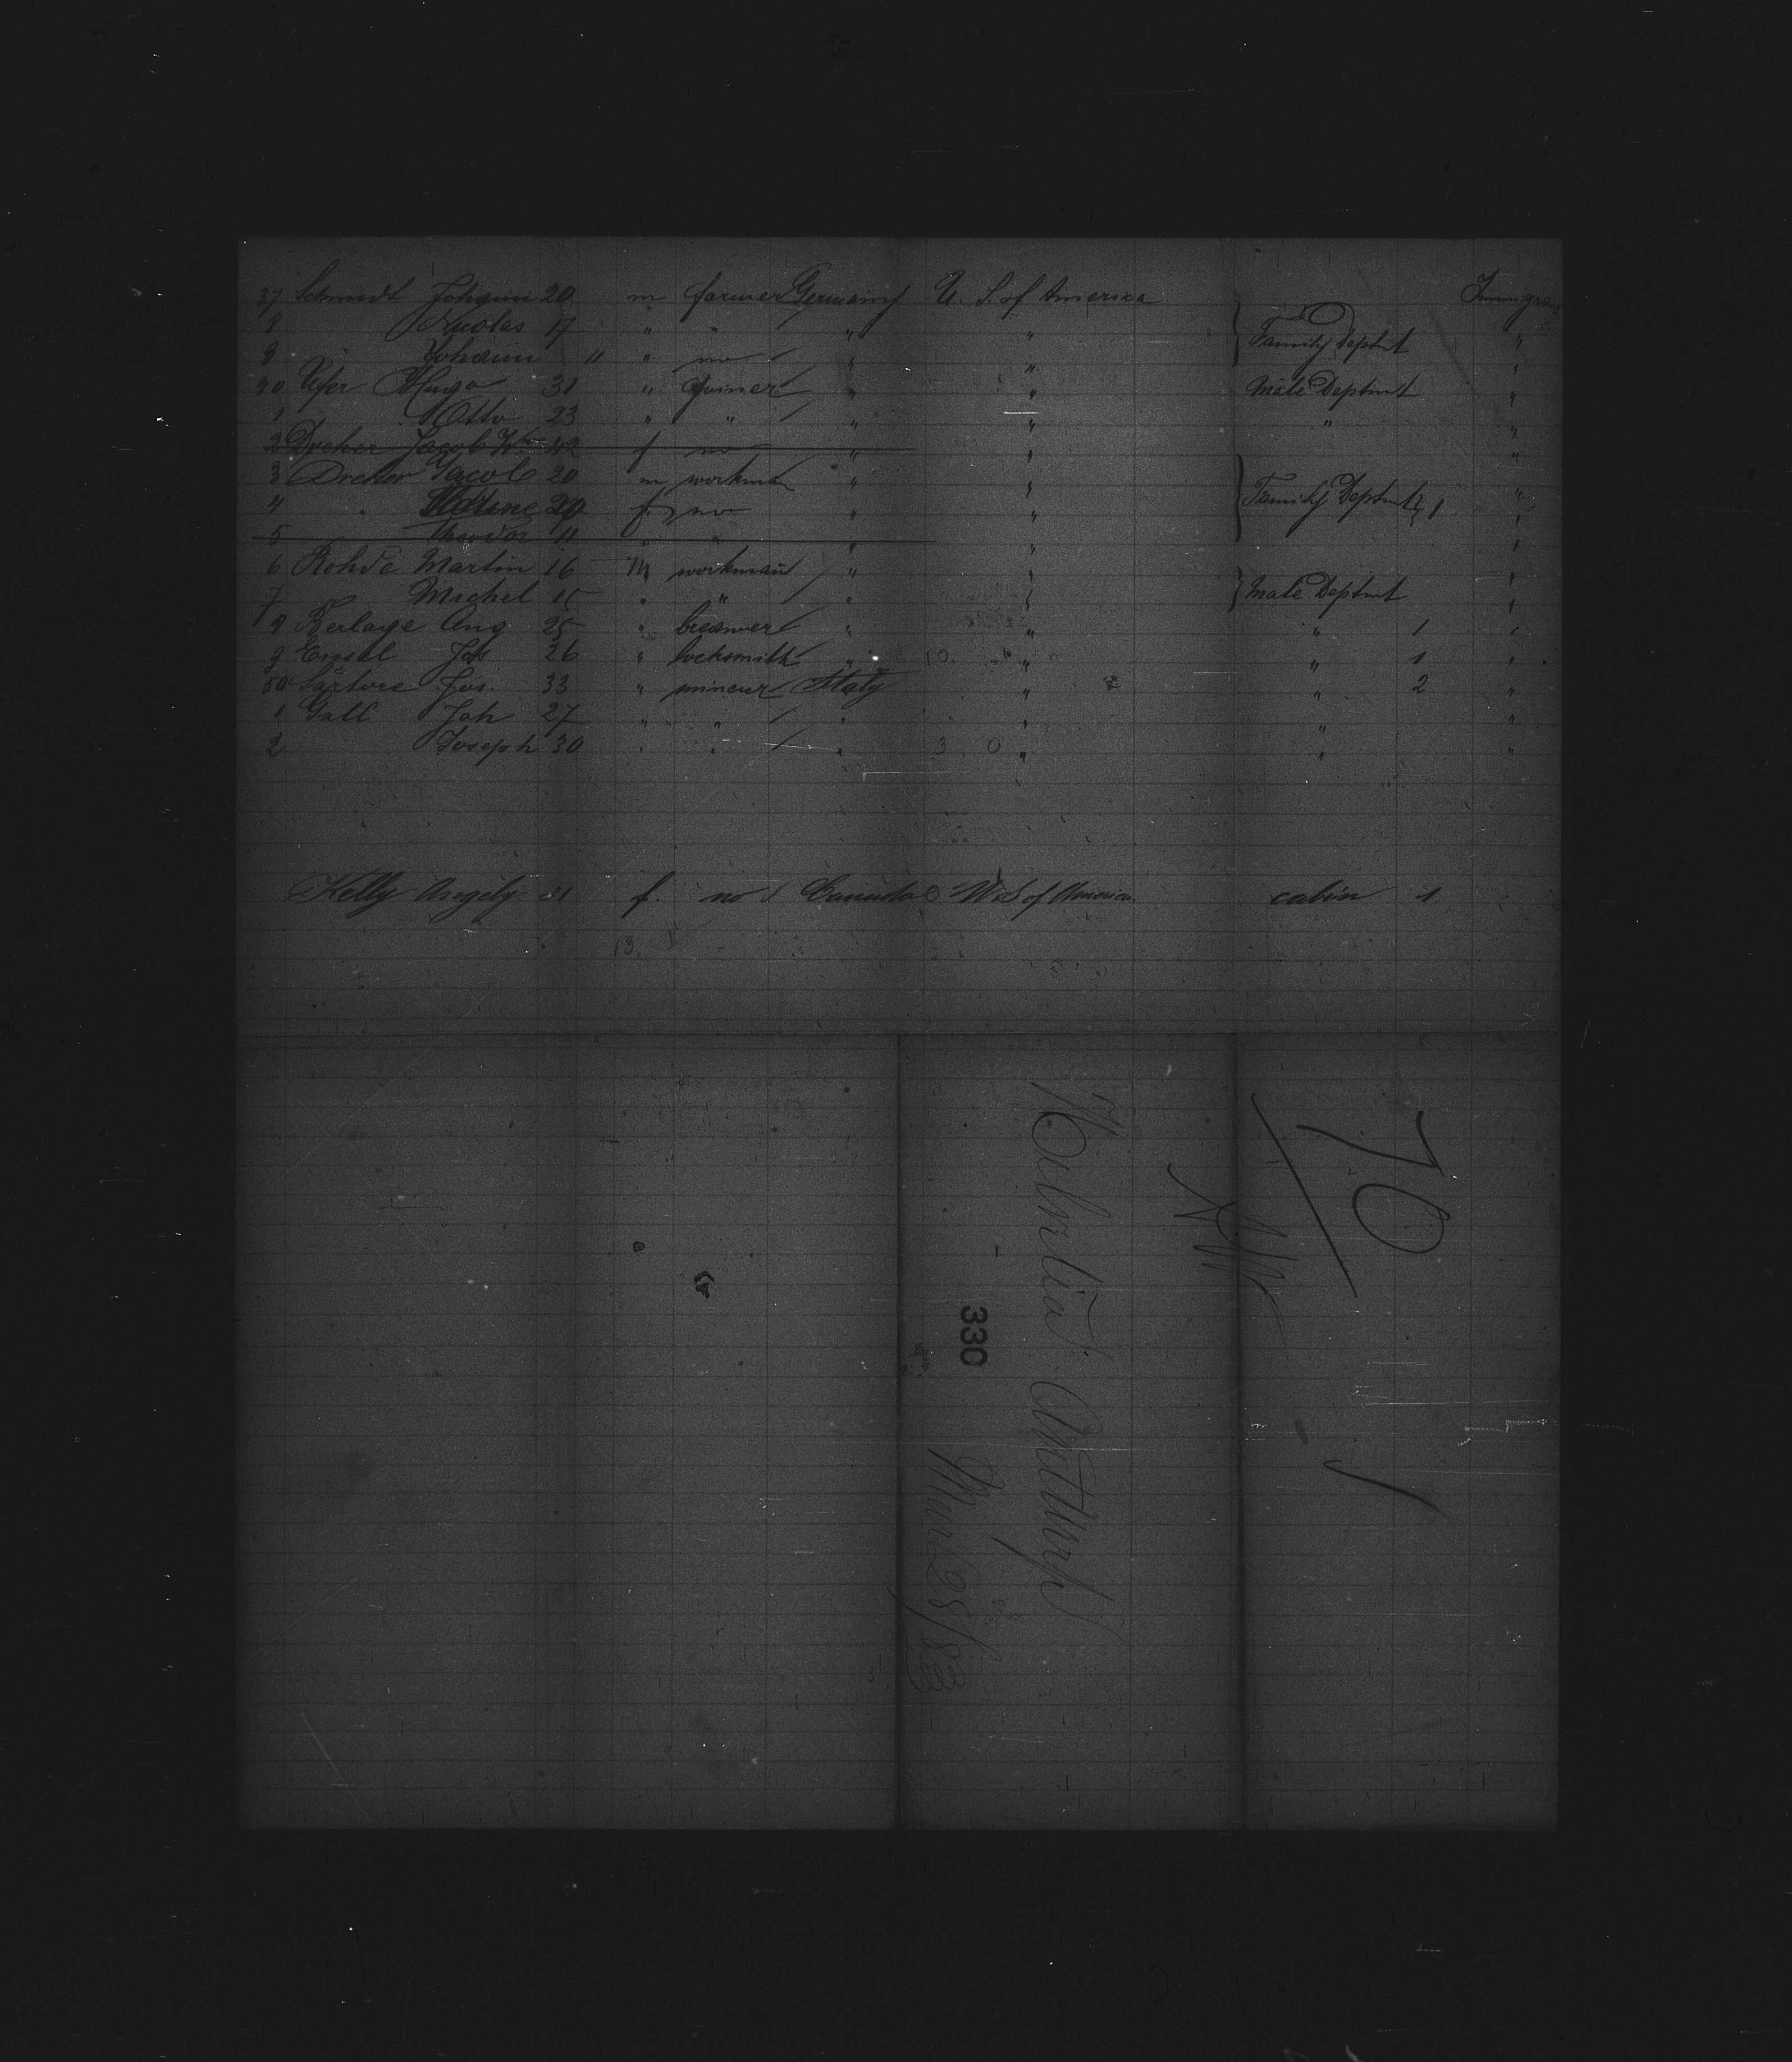 37 Schmidt Johann 20 m farmer Germany U. S. of America Immigra
8 Nicolas 17 " " " " Family Deptmt "
9 Johann 11 " no " " "
40 Hugo 31 " joiner " " Male Deptmt "
1 Otto 23 " " " " " "
2 Jacob 42 f no " " "
3 Dreher Jacob 20 m workman " " "
4 29 f no " " Family Deptmt 1 "
5 Theodor 11 " " " " "
6 Rohde Martin 16 m workman " " "
7 Michel 15 " " " " Male Deptmt "
8 Berlage Aug 25 " " " " 1 "
9 26 " locksmith " " " 1 "
50 Sartore Jos. 33 " mineur Italy " " 2 "
1 Gall Joh 27 " " " " " "
2 Joseph 30 " " " " " "
Kelly Angely 21 f. no Canada U S of America cabin 1
13.
70
Antwerp
330
Mar 28/83